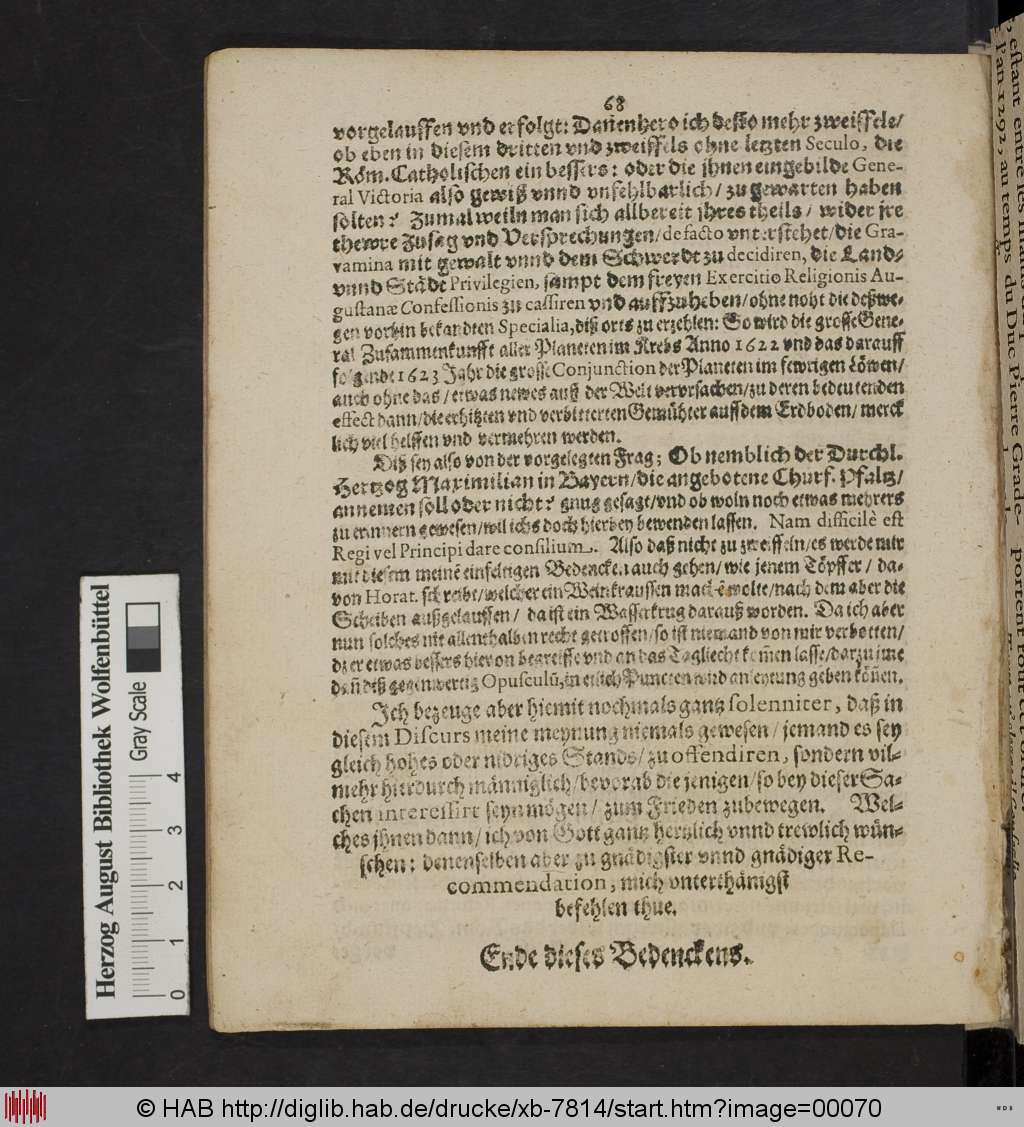 68
vorgelauffen vnd erfolgt: Dañenhero ich desto mehr zweiffele/
ob eben in diesem dritten vnd zweiffels ohne letzten Seculo, die
Röm. Catholischen ein bessers: oder die jhnen eingebilde Gene-
ral Victoria also gewiß vnnd vnfehlbarlich/ zu gewarten haben
solten? Zumal weiln man sich allbereit jhres theils/ wider jre
thewre Zusag vnd Versprechungen/ de facto vnterstehet/ die Gra-
vamina mit gewalt vnnd dem Schwerdt zu decidiren, die Land-
vnnd Städt Privilegien, sampt dem freyen Exercitio Religionis Au-
gustanæ Confessionis zu cassiren vnd auffzuheben/ ohne noht die deßwe-
gen vorhin bekandten Specialia, diß orts zu erzehlen: So wird die grosse Gene-
ral Zusammenkunfft aller Planeten im Krebs Anno 1622 vnd das darauff
folgende 1623 Jahr die grosse Conjunction der Planeten im fewrigen Löwen/
auch ohne das/ etwas newes auß der Welt vervrsachen/ zu deren bedeutenden
effect dann/ die erhitzten vnd verbitterten Gemühter auff dem Erdboden/ merck
lich viel helffen vnd vermehren werden.
Diß sey also von der vorgelegten Frag; Ob nemblich der Durchl.
Hertzog Maximilian in Bayern/ die angebotene Churf. Pfaltz/
annemen soll oder nicht? gnug gesagt/ vnd ob woln noch etwas mehrers
zu erinnern gewesen/ wil ichs doch hierbey bewenden lassen. Nam difficilè est
Regi vel Principi dare consilium. Also daß nicht zu zweiffeln/ es werde mir
mit diesem meinē einfeltigen Bedencken auch gehen/ wie jenem Töpffer/ da-
von Horat. schreibt/ welcher ein Weinkraussen machē wolte/ nach dem aber die
Scheiben außgelauffen/ da ist ein Wasserkrug darauß worden. Da ich aber
nun solches nit allenthalben recht getroffen/ so ist niemand von mir verbotten/
dz er etwas bessers hiervon begreiffe vnd an das Tagliecht kom̃en lasse/ darzu jme
dañ diß gegenwertig Opusculū, in etlich Puncten wird anleytung geben köñen.
Ich bezeuge aber hiemit nochmals gantz solenniter, daß in
diesem Discurs meine meynung niemals gewesen/ jemand es sey
gleich hohes oder nidriges Stands/ zu offendiren, sondern vil-
mehr hierdurch männiglich/ bevorab die jenigen/ so bey dieser Sa-
chen interessirt seyn mögen/ zum Frieden zubewegen. Wel-
ches jhnen dann/ ich von Gott gantz hertzlich vnnd trewlich wün-
schen: denenselben aber zu gnädigster vnnd gnädiger Re-
commendation, mich vnterthänigst
befehlen thue.
Ende dieses Bedenckens.
Herzog August Bibliothek Wolfenbüttel
Gray Scale
0 1 2 3 4
© HAB http://diglib.hab.de/drucke/xb-7814/start.htm?image=00070